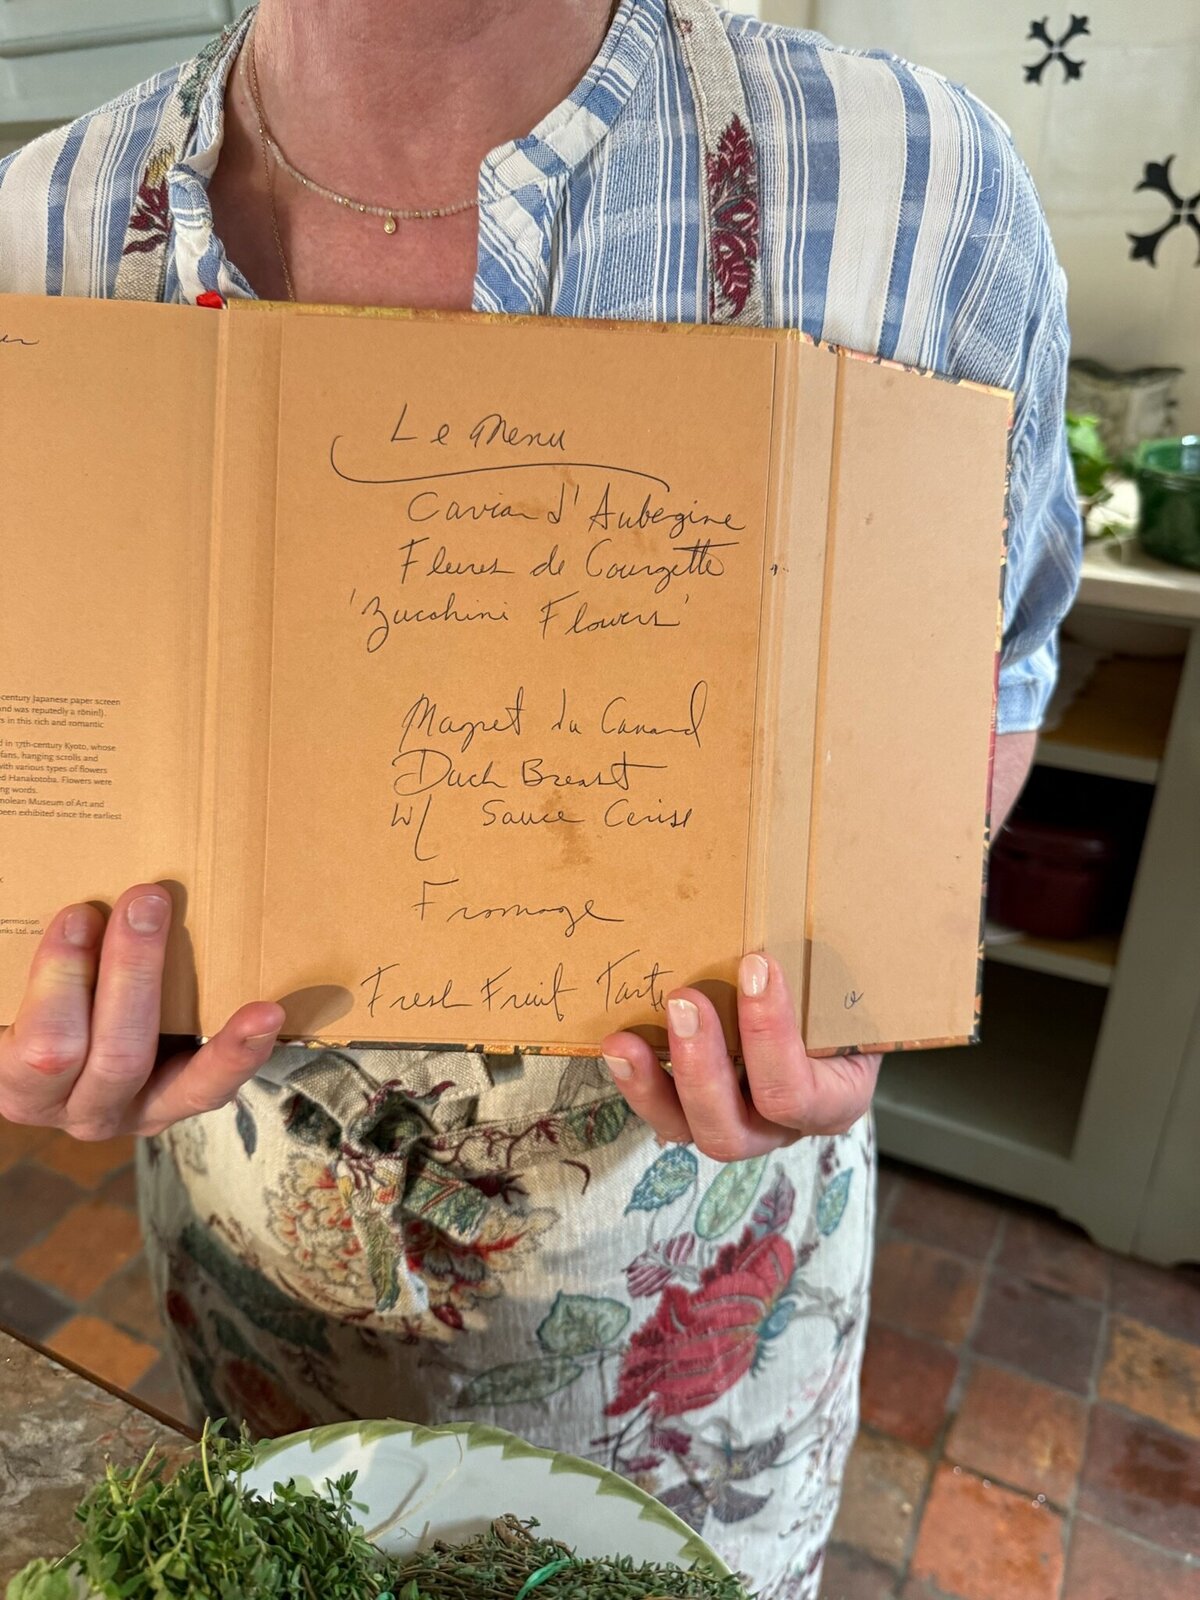 Le Menu
Caviar d'Aubergine
Fleures de Courgette
'Zucchini Flowers'
Magret du Canard
Duck Breast
w/ Sauce Cerise
Fromage
Fresh Fruit Tarte
-century Japanese paper screen
and was reputedly a rōnin!).
s in this rich and romantic
d in 17th-century Kyoto, whose
fans, hanging scrolls and
with various types of flowers
ed Hanakotoba. Flowers were
ng words.
molean Museum of Art and
been exhibited since the earliest
permission
nks Ltd. and